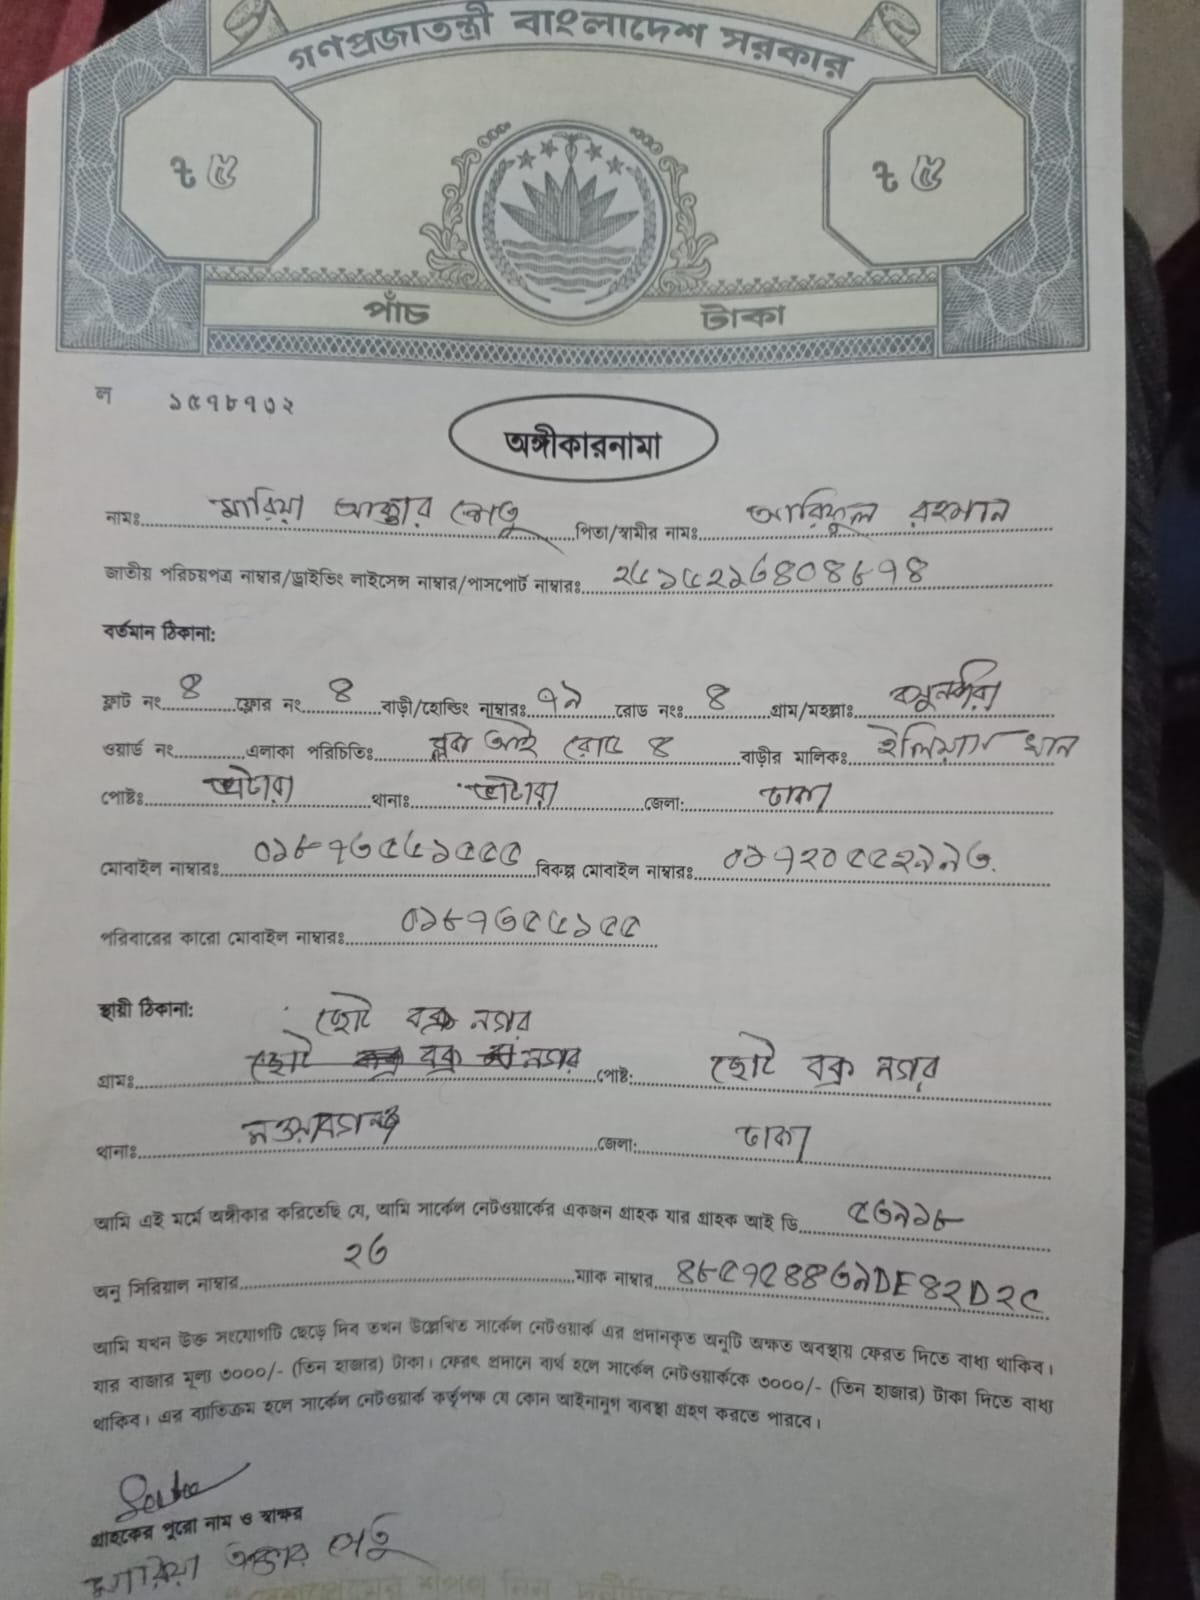 গণপ্রজাতন্ত্রী বাংলাদেশ সরকার
৳ ৫ ৳ ৫
পাঁচ টাকা
ল ১৫৭৮৭৩২
অঙ্গীকারনামা
নামঃ মারিয়া আক্তার সেতু পিতা/স্বামীর নামঃ আরিফুল রহমান
জাতীয় পরিচয়পত্র নাম্বার/ড্রাইভিং লাইসেন্স নাম্বার/পাসপোর্ট নাম্বারঃ
বর্তমান ঠিকানা:
ফ্লাট নং ৪ ফ্লোর নং ৪ বাড়ী/হোল্ডিং নাম্বারঃ ৭৯ রোড নংঃ ৪ গ্রাম/মহল্লাঃ বসুন্ধরা
ওয়ার্ড নং এলাকা পরিচিতিঃ ব্লক আই রোড ৪ বাড়ীর মালিকঃ ইলিয়াস খান
পোষ্টঃ ভাটারা থানাঃ ভাটারা জেলা: ঢাকা
মোবাইল নাম্বারঃ বিকল্প মোবাইল নাম্বারঃ ০১৭২০৫৫২৯৯৩
পরিবারের কারো মোবাইল নাম্বারঃ
স্থায়ী ঠিকানা:
ছোট বক্স নগর
গ্রামঃ পোষ্ট: ছোট বক্স নগর
থানাঃ নওয়াবগঞ্জ জেলা: ঢাকা
আমি এই মর্মে অঙ্গীকার করিতেছি যে, আমি সার্কেল নেটওয়ার্কের একজন গ্রাহক যার গ্রাহক আই ডি ৫৩৯১৮
অনু সিরিয়াল নাম্বার ২৩ ম্যাক নাম্বার ৪৮৫৭৫৪৪৩৯DE৪২D২C
আমি যখন উক্ত সংযোগটি ছেড়ে দিব তখন উল্লেখিত সার্কেল নেটওয়ার্ক এর প্রদানকৃত অনুটি অক্ষত অবস্থায় ফেরত দিতে বাধ্য থাকিব।
যার বাজার মূল্য ৩০০০/- (তিন হাজার) টাকা। ফেরৎ প্রদানে ব্যর্থ হলে সার্কেল নেটওয়ার্ককে ৩০০০/- (তিন হাজার) টাকা দিতে বাধ্য
থাকিব। এর ব্যতিক্রম হলে সার্কেল নেটওয়ার্ক কর্তৃপক্ষ যে কোন আইনানুগ ব্যবস্থা গ্রহণ করতে পারবে।
গ্রাহকের পুরো নাম ও স্বাক্ষর
মারিয়া আক্তার সেতু